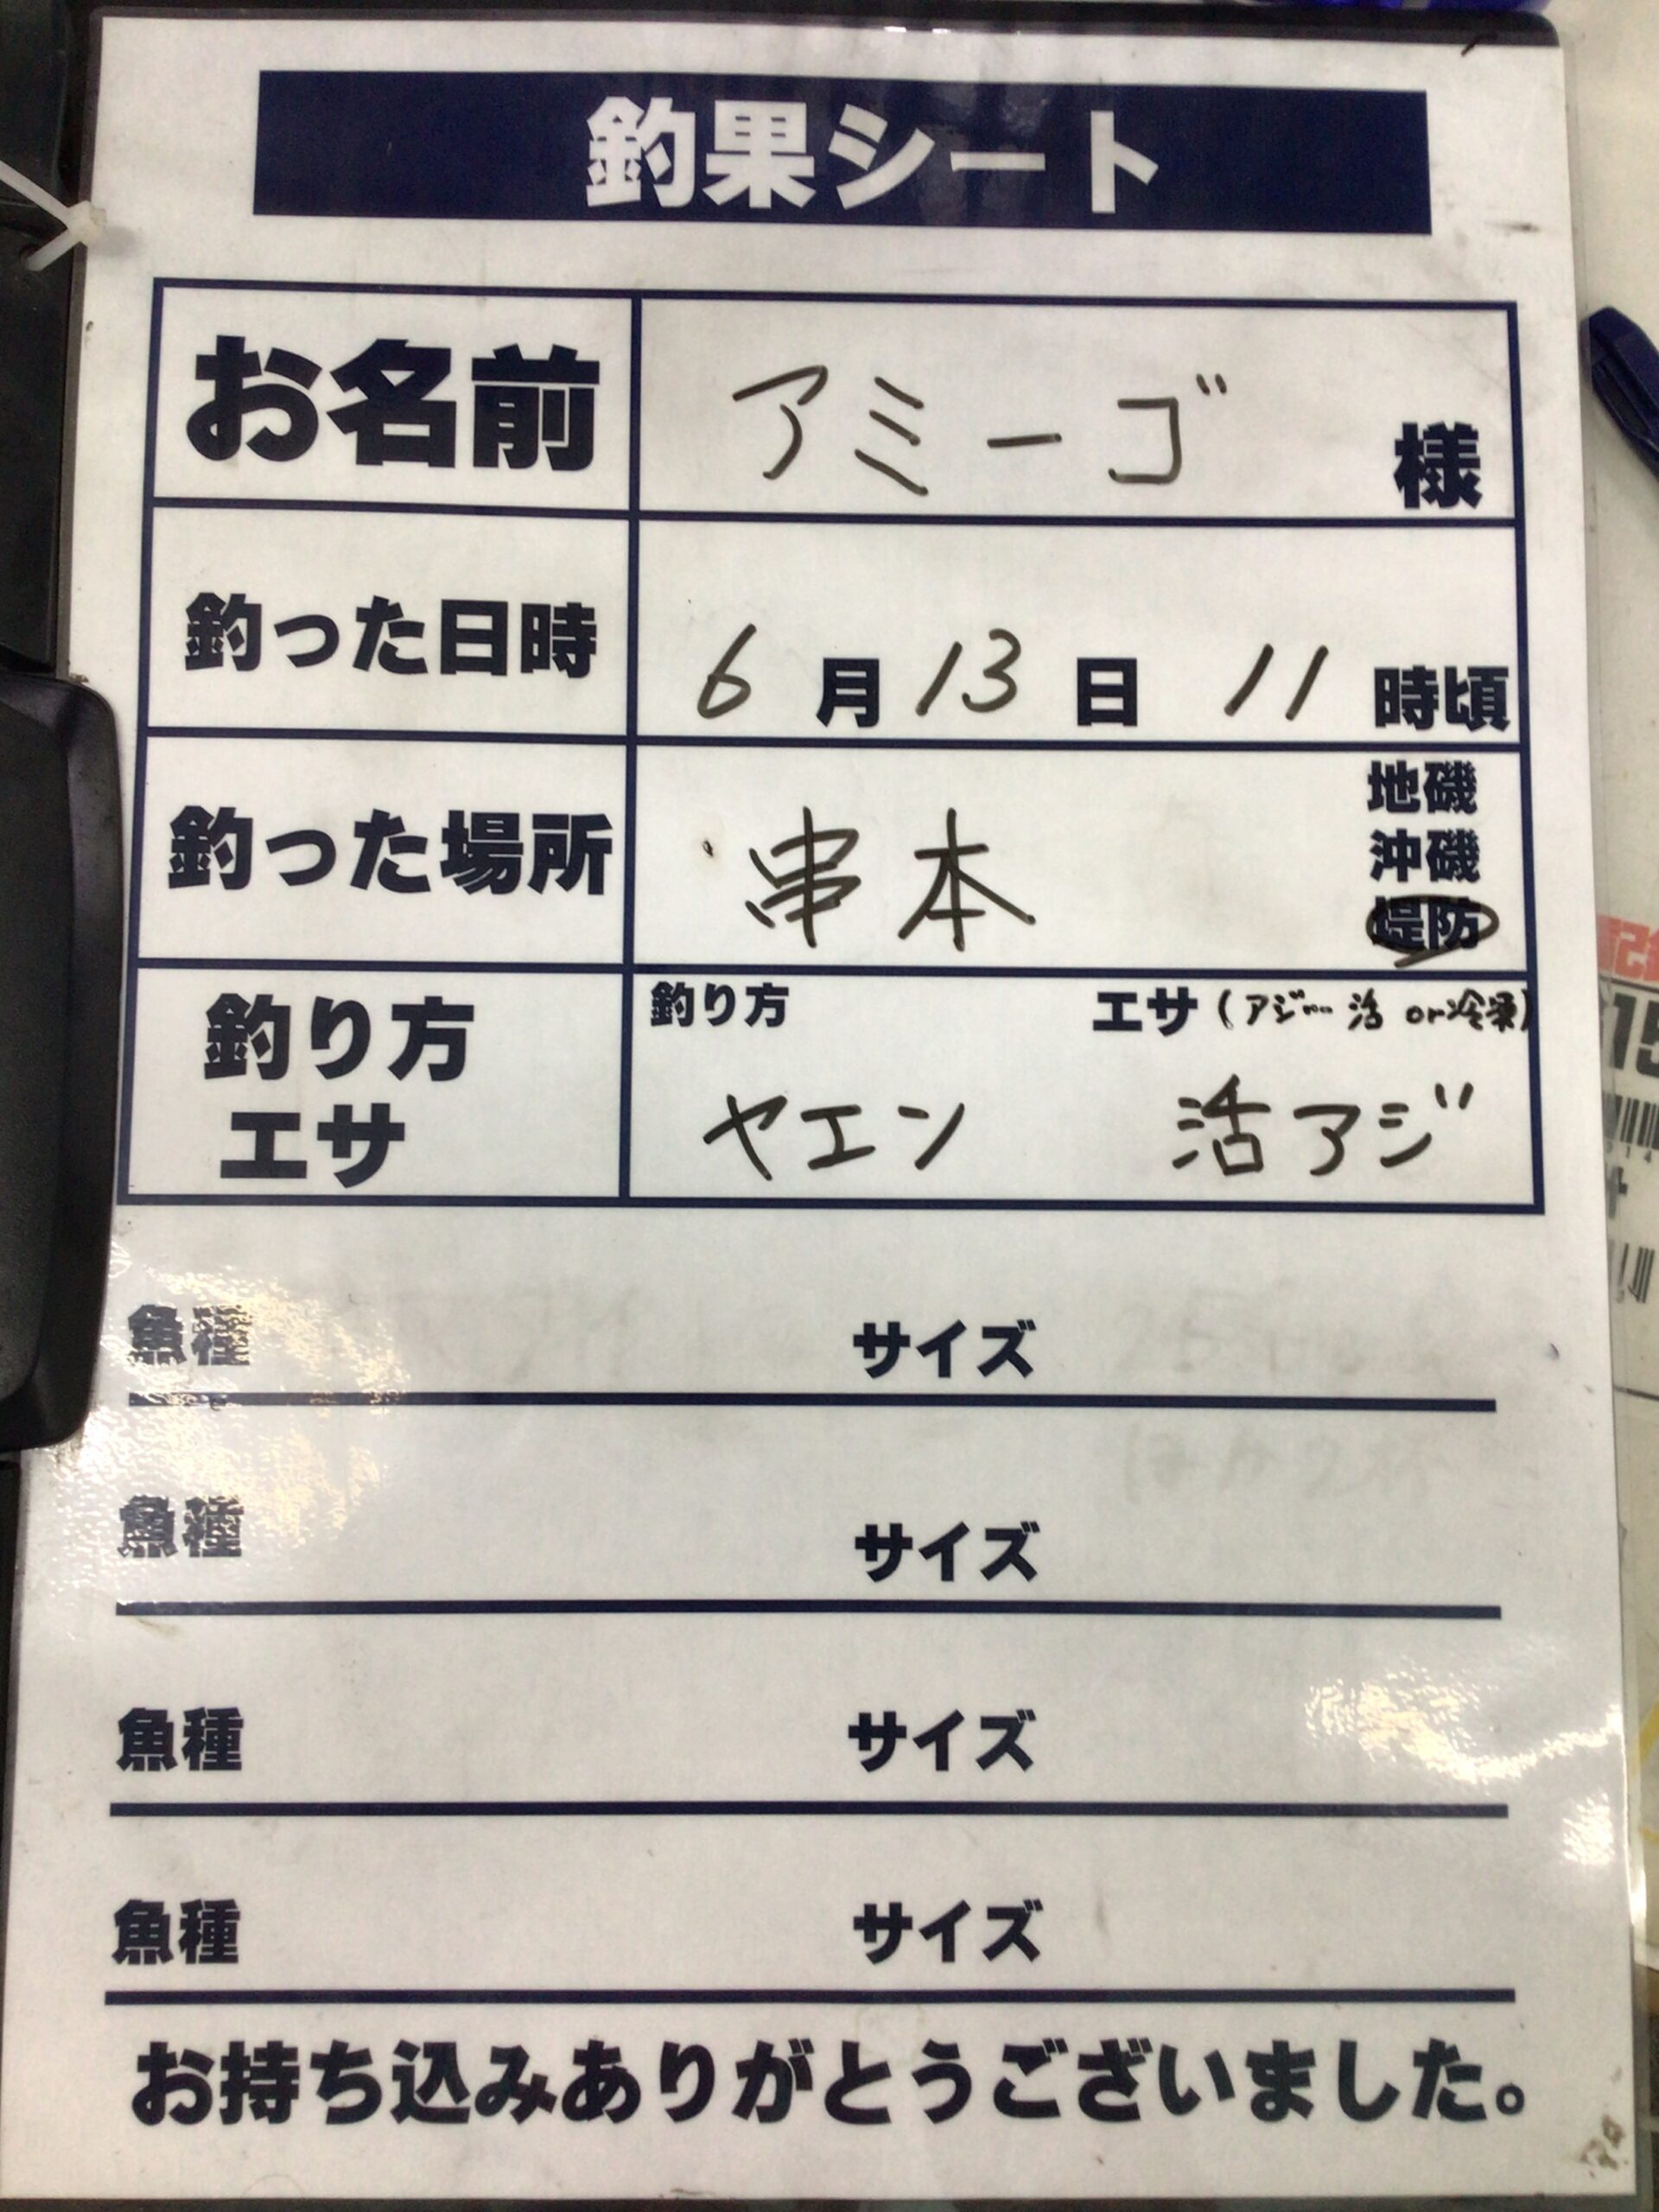 釣果シート
お名前 アミーゴ 様
釣った日時 6月13日 11時頃
釣った場所 串本 地磯
沖磯
堤防
釣り方 エサ
釣り方 エサ(アジ…活 or 冷凍)
ヤエン 活アジ
魚種 サイズ
ほか2杯
魚種 サイズ
魚種 サイズ
魚種 サイズ
お持ち込みありがとうございました。